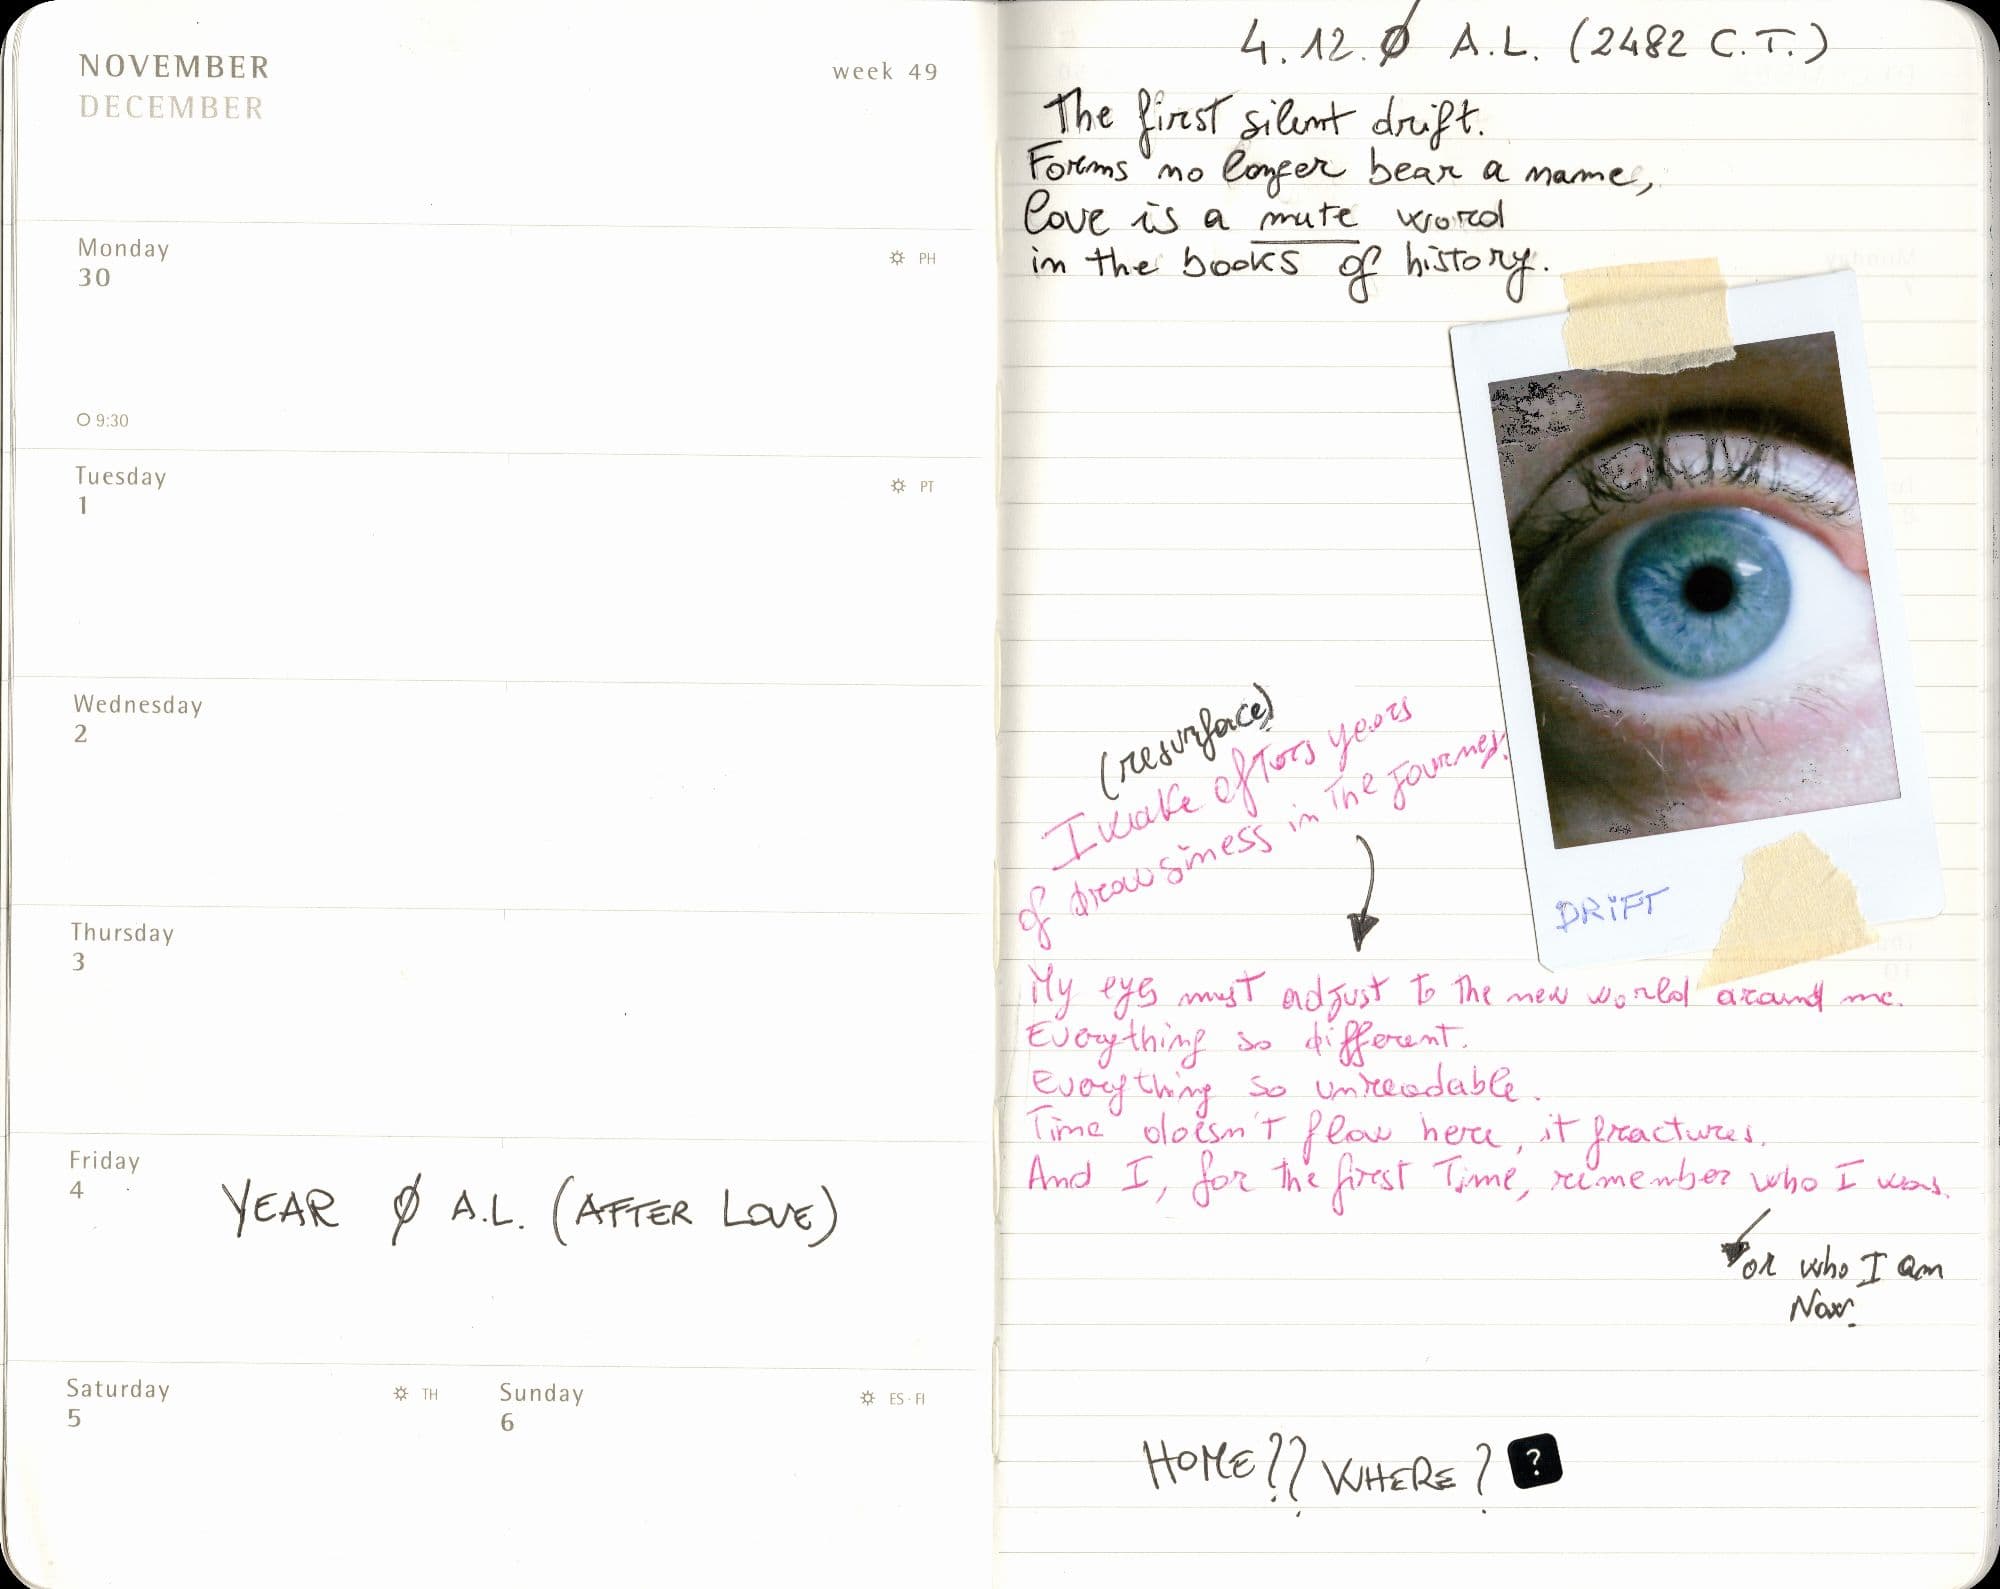 NOVEMBER
DECEMBER
week 49
Monday
30
PH
9:30
Tuesday
1
PT
Wednesday
2
Thursday
3
Friday
4
YEAR Ø A.L. (AFTER LOVE)
Saturday
5
TH
Sunday
6
ES·FI
4.12.Ø A.L. (2482 C.T.)
The first silent drift.
Forms no longer bear a name,
love is a mute word
in the books of history.
DRIFT
(resurface)
I wake after years
of drowsiness in the journey.
My eyes must adjust to the new world around me.
Everything so different.
Everything so unreadable.
Time doesn't flow here, it fractures.
And I, for the first Time, remember who I was.
or who I am
Now.
HOME?? WHERE? ?